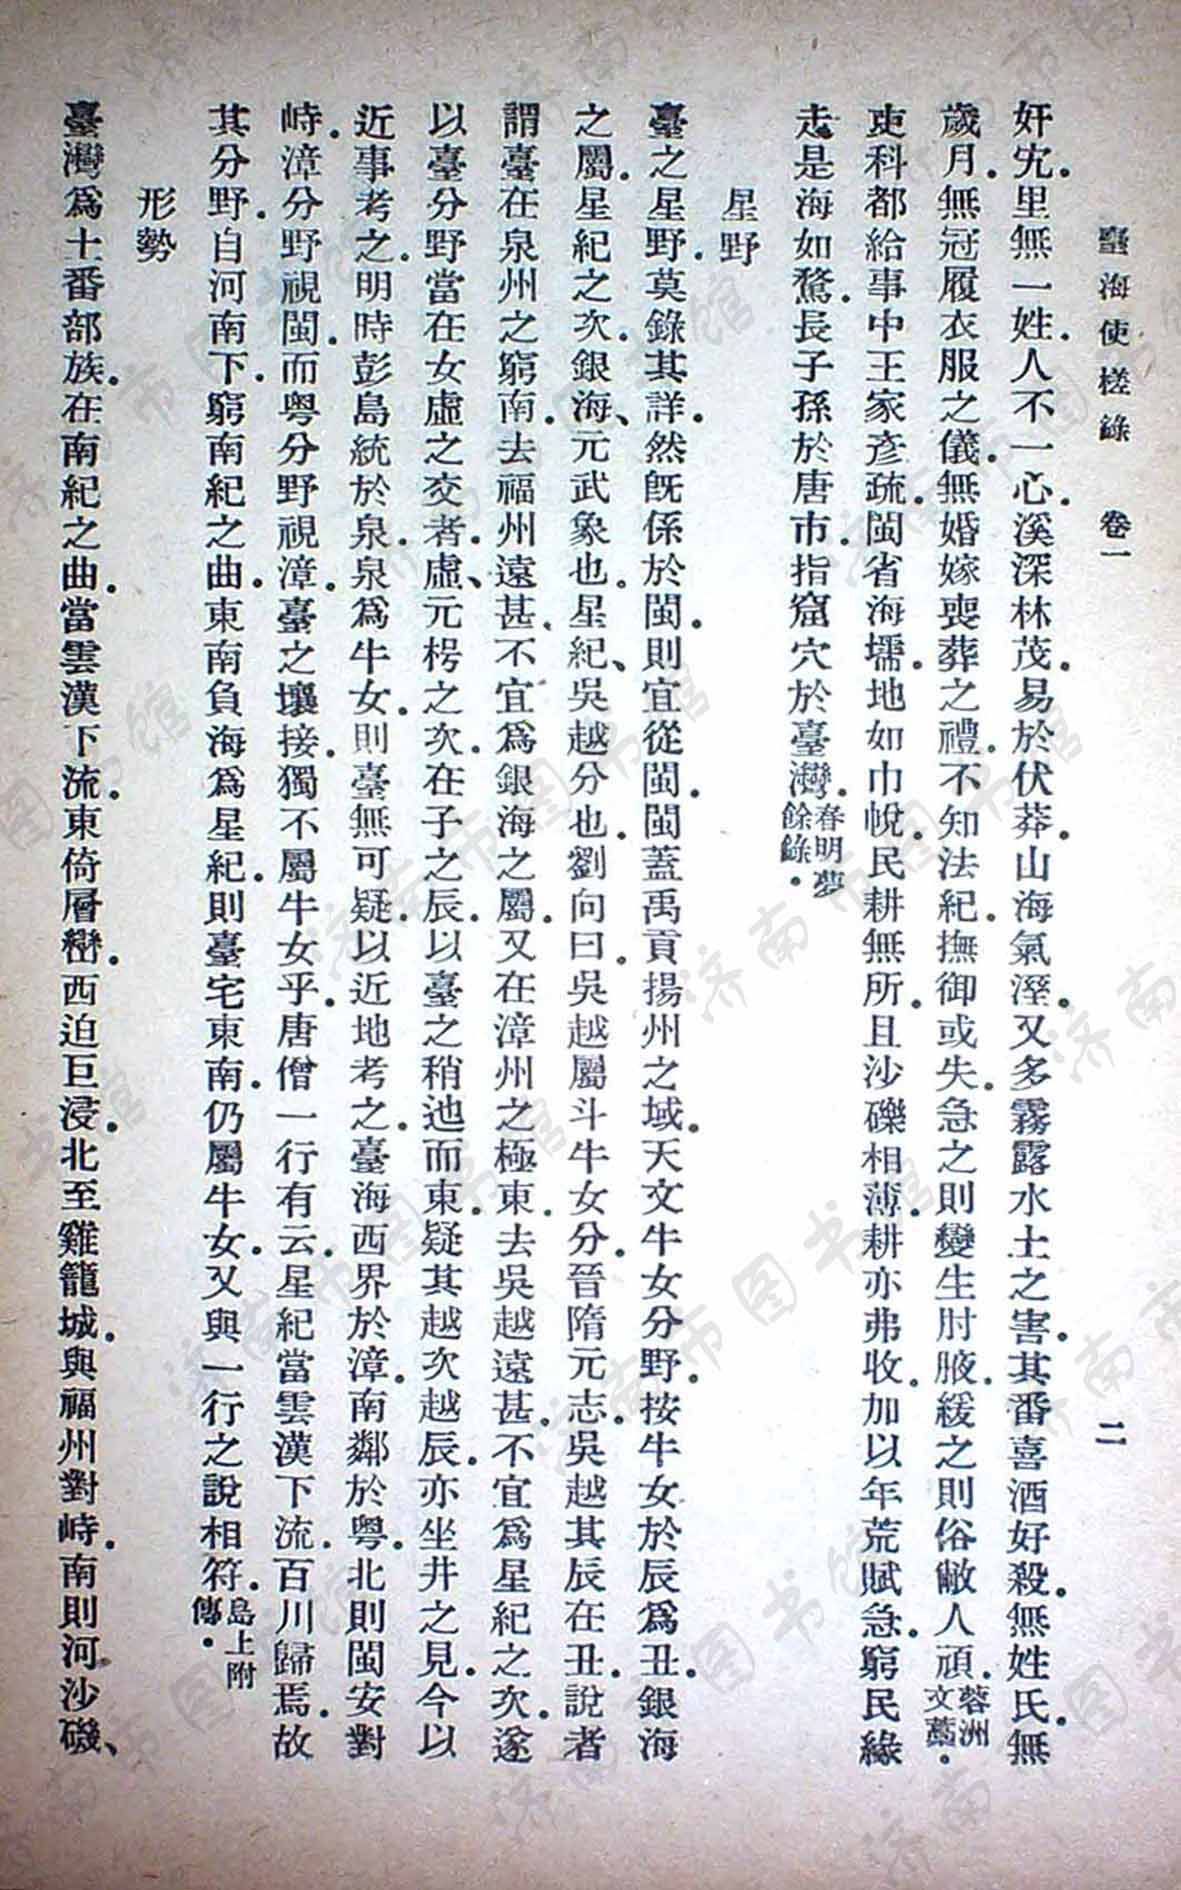 臺海使槎錄 卷一 二
奸宄.里無一姓.人不一心.溪深林茂.易於伏莽.山海氣溼.又多霧露水土之害.其番喜酒好殺.無姓氏.無
歲月.無冠履衣服之儀.無婚嫁喪葬之禮.不知法紀.撫御或失.急之則變生肘腋.緩之則俗敝人頑.蓉洲文藁.
吏科都給事中王家彥疏.閩省海壖.地如巾帨.民耕無所.且沙礫相薄.耕亦弗收.加以年荒賦急.窮民緣
走是海如騖.長子孫於唐市.指窟穴於臺灣.春明夢餘錄.
星野
臺之星野.莫錄其詳.然旣係於閩.則宜從閩.閩蓋禹貢揚州之域.天文牛女分野.按牛女於辰爲丑.銀海
之屬.星紀之次.銀海、元武象也.星紀、吳越分也.劉向曰.吳越屬斗牛女分.晉隋元志.吳越其辰在丑.說者
謂臺在泉州之窮南.去福州遠甚.不宜爲銀海之屬.又在漳州之極東.去吳越遠甚.不宜爲星紀之次.遂
以臺分野當在女虛之交者.虛、元枵之次.在子之辰.以臺之稍迆而東.疑其越次越辰.亦坐井之見.今以
近事考之.明時彭島統於泉.泉爲牛女.則臺無可疑.以近地考之.臺海西界於漳.南鄰於粵.北則閩安對
峙.漳分野視閩.而粤分野視漳.臺之壤接.獨不屬牛女乎.唐僧一行有云.星紀當雲漢下流.百川歸焉.故
其分野.自河南下.窮南紀之曲.東南負海爲星紀.則臺宅東南.仍屬牛女.又與一行之說相符.島上附傳.
形勢
臺灣爲土番部族.在南紀之曲.當雲漢下流.東倚層巒.西迫巨浸.北至雞籠城.與福州對峙.南則河沙磯、
济南市图书馆